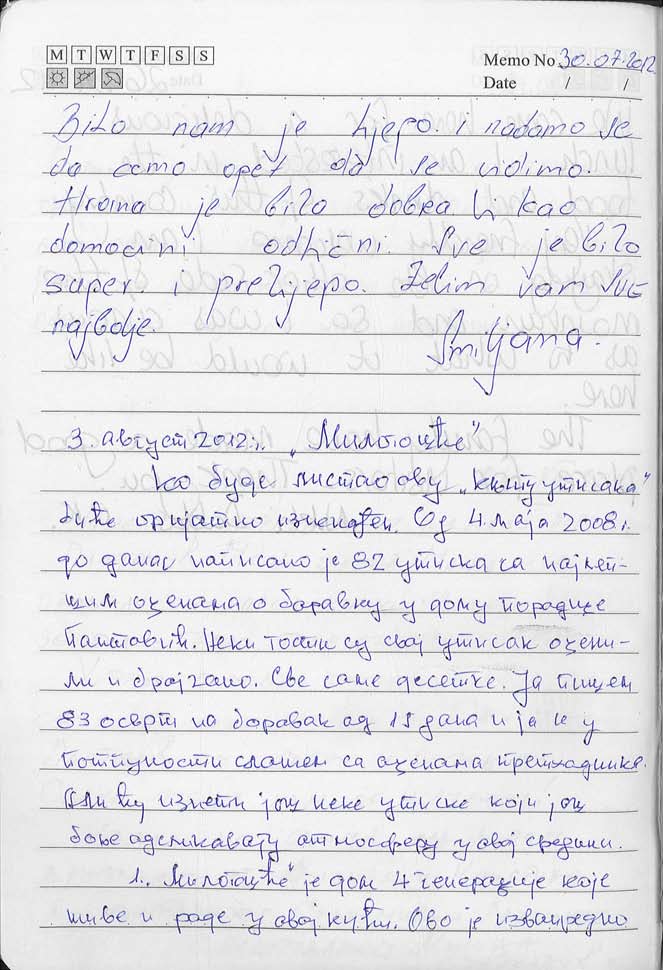 M T W T F S S
Memo No. 30.07.2012
Date / /
Bilo nam je ljepo i nadamo se
da ćemo opet da se vidimo.
Hrana je bila dobra. Vi kao
domaćini odlični. Sve je bilo
super i prelijepo. Želim vam SVE
najbolje. Smiljana.
3. август 2012 г. „Милоточће“
Ко буде листао ову „књигу утисака“
биће пријатно изненађен. Од 4. маја 2008 г.
до данас написано је 82 утиска са најлеп-
шим оценама о боравку у дому породице
Неки гости су свој утисак оцени-
ли и бројчано. Све саме десетке. Ја пишем
83 осврт на боравак од 15 дана и ја се у
потпуности слажем са оценама претходника.
Али ћу изнети још неке утиске који још
боље одсликавају атмосферу у овој средини.
1. „Милоточће“ је дом 4 генерације које
живе и раде у овој кући. Ово је изванредно